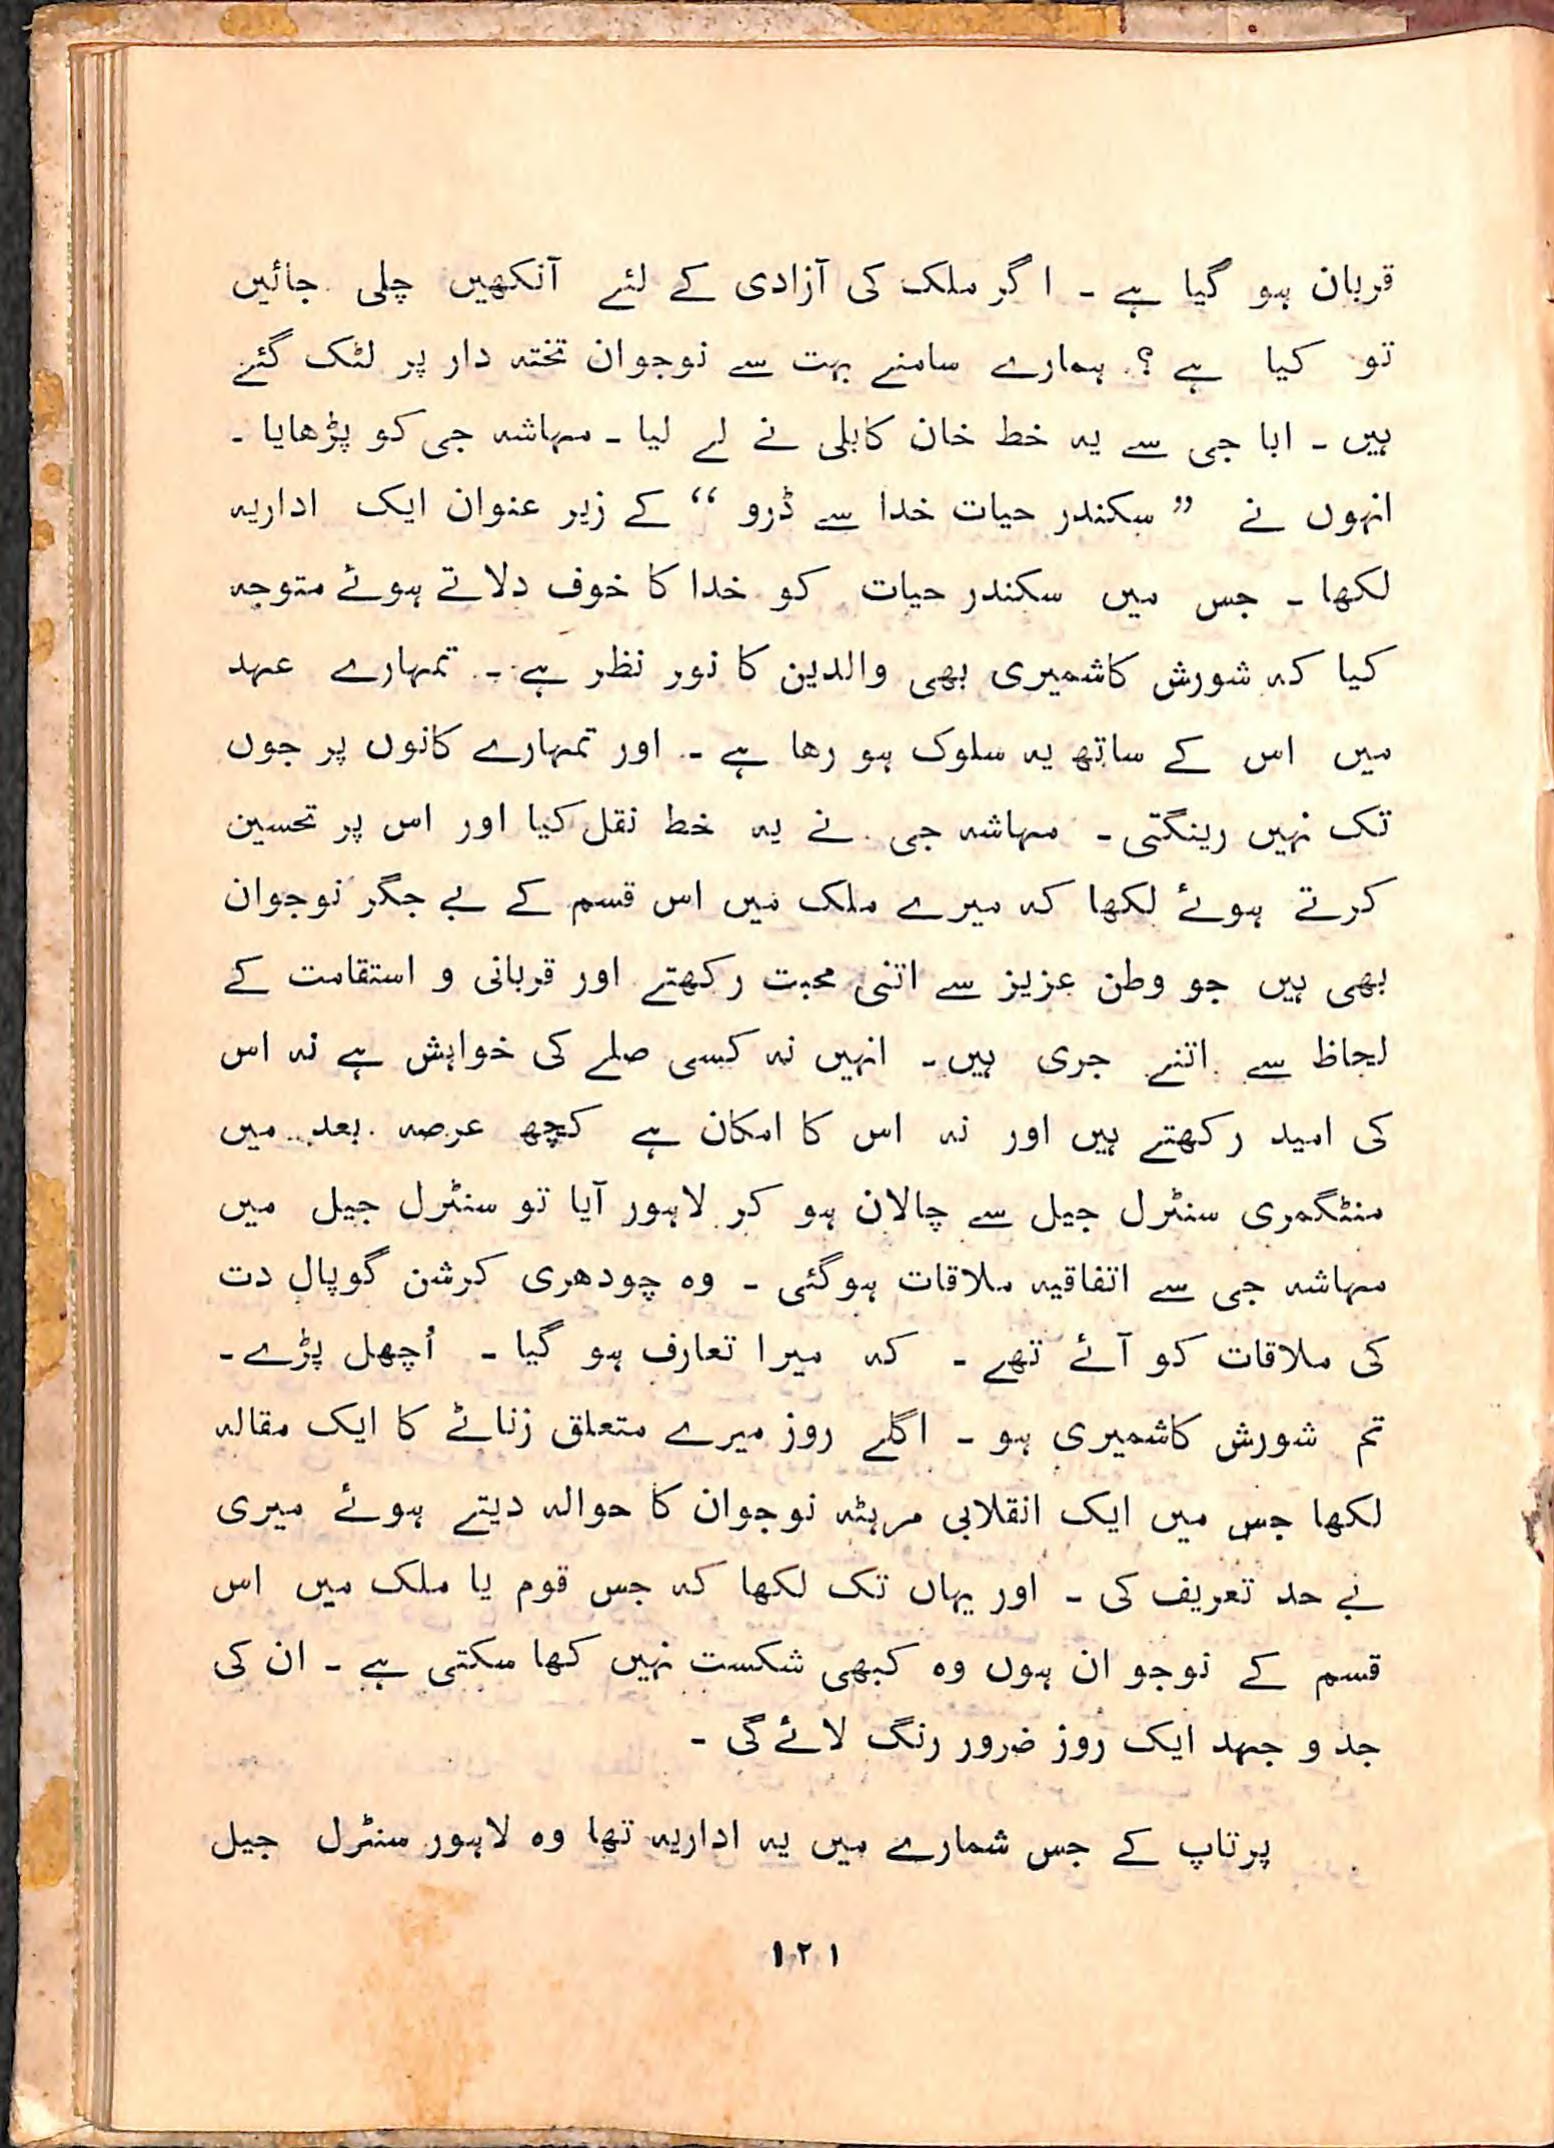 قربان ہو گیا ہے ۔ اگر ملک کی آزادی کے لئے آنکھیں چلی جائیں
تو کیا ہے ؟ ہمارے سامنے بہت سے نوجوان تختہ دار پر لٹک گئے
ہیں ۔ ابا جی سے یہ خط خان کابلی نے لے لیا ۔ مہاشہ جی کو پڑھایا ۔
انہوں نے ” سکندر حیات خدا سے ڈرو “ کے زیر عنوان ایک اداریہ
لکھا ۔ جس میں سکندر حیات کو خدا کا خوف دلاتے ہوئے متوجہ
کیا کہ شورش کاشمیری بھی والدین کا نور نظر ہے ۔ تمہارے عہد
میں اس کے ساتھ یہ سلوک ہو رھا ہے ۔ اور تمہارے کانوں پر جوں
تک نہیں رینگتی ۔ مہاشہ جی نے یہ خط نقل کیا اور اس پر تحسین
کرتے ہوئے لکھا کہ میرے ملک میں اس قسم کے بے جگر نوجوان
بھی ہیں جو وطن عزیز سے اتنی محبت رکھتے اور قربانی و استقامت کے
لحاظ سے اتنے جری ہیں ۔ انہیں نہ کسی صلے کی خواہش ہے نہ اس
کی امید رکھتے ہیں اور نہ اس کا امکان ہے کچھ عرصہ بعد میں
منٹگمری سنٹرل جیل سے چالان ہو کر لاہور آیا تو سنٹرل جیل میں
مہاشہ جی سے اتفاقیہ ملاقات ہوگئی ۔ وہ چودھری کرشن گوپال دت
کی ملاقات کو آئے تھے ۔ کہ میرا تعارف ہو گیا ۔ اُچھل پڑے ۔
تم شورش کاشمیری ہو ۔ اگلے روز میرے متعلق زناٹے کا ایک مقالہ
لکھا جس میں ایک انقلابی مرہٹہ نوجوان کا حوالہ دیتے ہوئے میری
بے حد تعریف کی ۔ اور یہاں تک لکھا کہ جس قوم یا ملک میں اس
قسم کے نوجو ان ہوں وہ کبھی شکست نہیں کھا سکتی ہے ۔ ان کی
جد و جہد ایک روز ضرور رنگ لائے گی ۔
پرتاپ کے جس شمارے میں یہ اداریہ تھا وہ لاہور سنٹرل جیل
۱۲۱